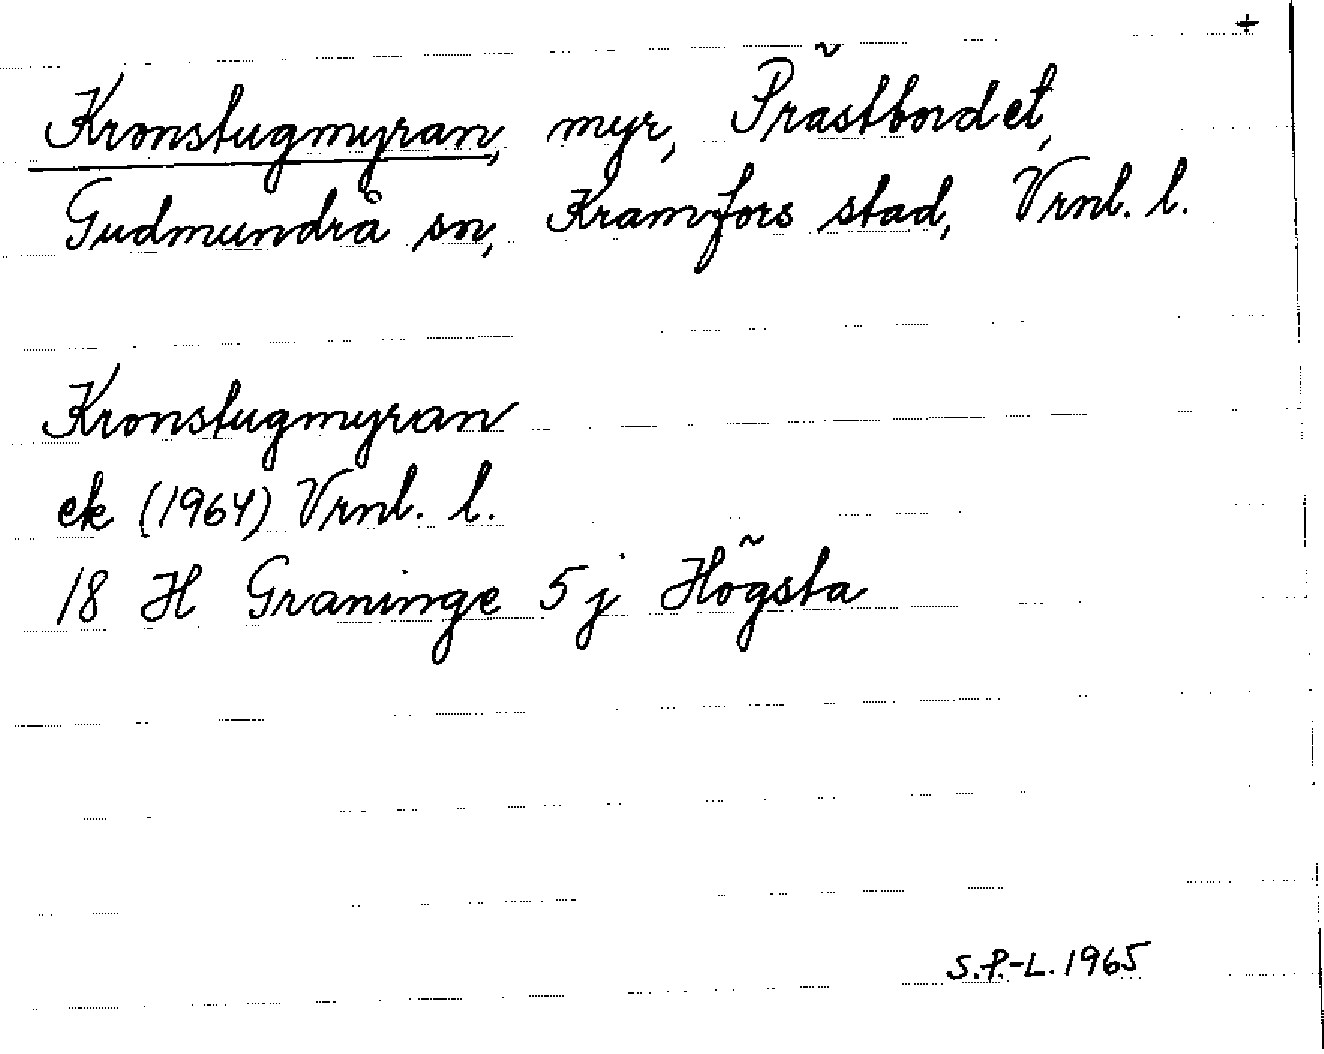 +
Kronstugmyran, myr, Prästbordet,
Gudmundrå sn, Kramfors stad, Vrnl. l.
Kronstugmyran
ek (1964) Vrnl. l.
18 H Graninge 5 j Högsta
S.P.-L. 1965